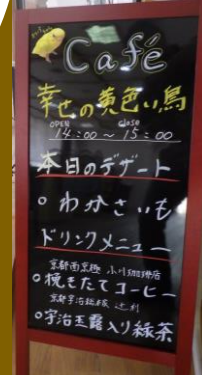 Café
幸せの黄色い鳥
OPEN close
14:00～15:00
本日のデザート
○わかさいも
ドリンクメニュー
京都南京極 小川珈琲店
○挽きたてコーヒー
京都宇治総本家 辻利
○宇治玉露入り緑茶